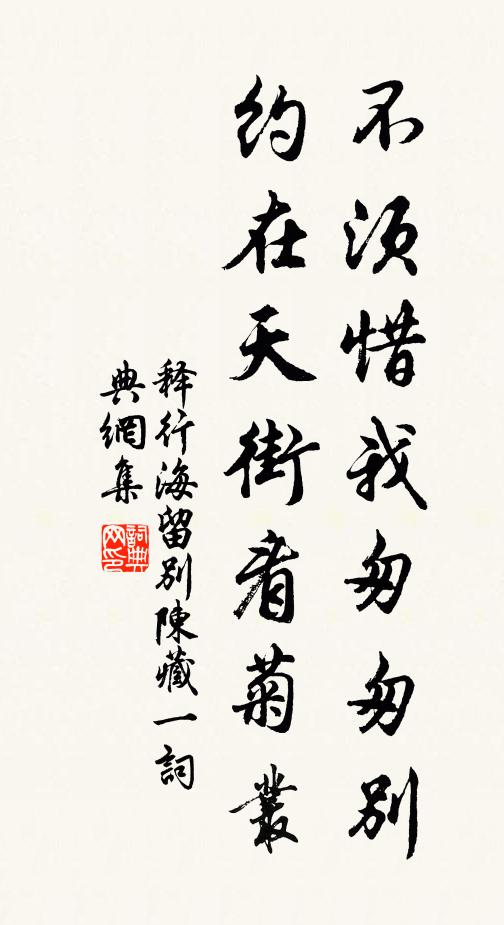 不须惜我匆匆别
约在天街看菊叢
释行海留別陳藏一詞
典網集
詞典
网印